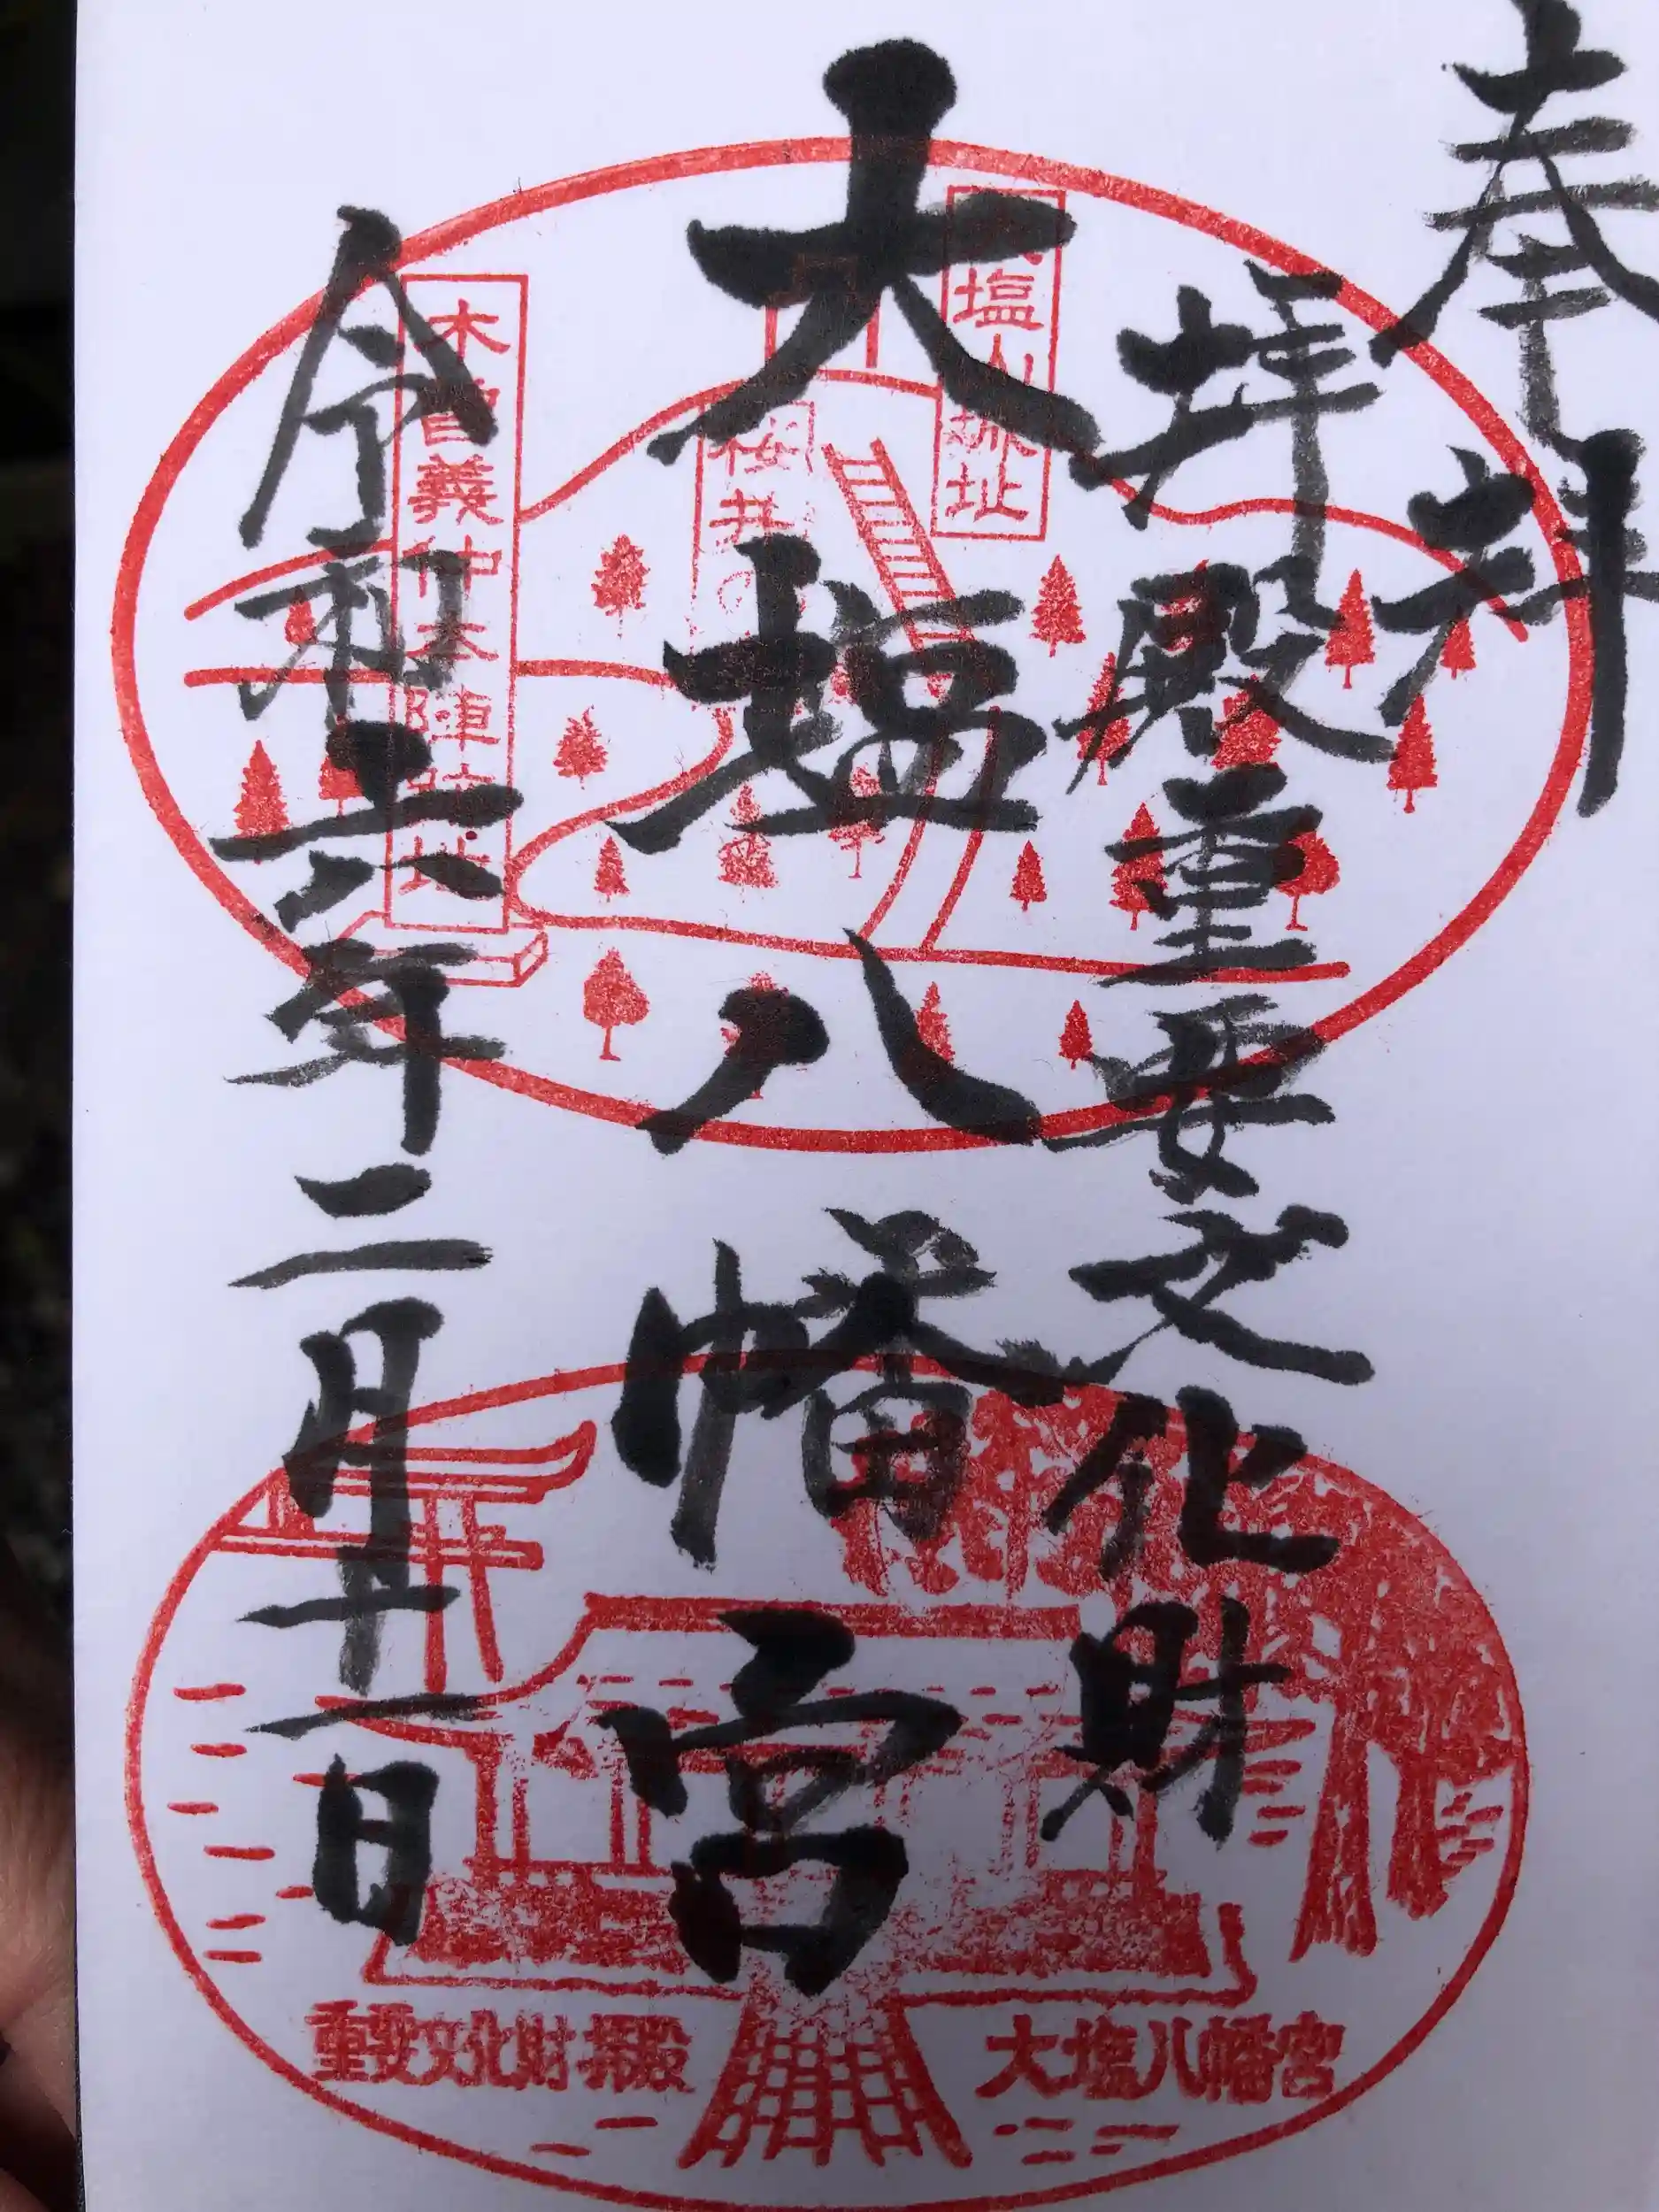 奉拝
拝殿重要文化財
大塩八幡宮
令和六年二月十一日
塩山城址
桜井
木曽義仲本陣跡地
大塩八幡宮
重要文化財拝殿